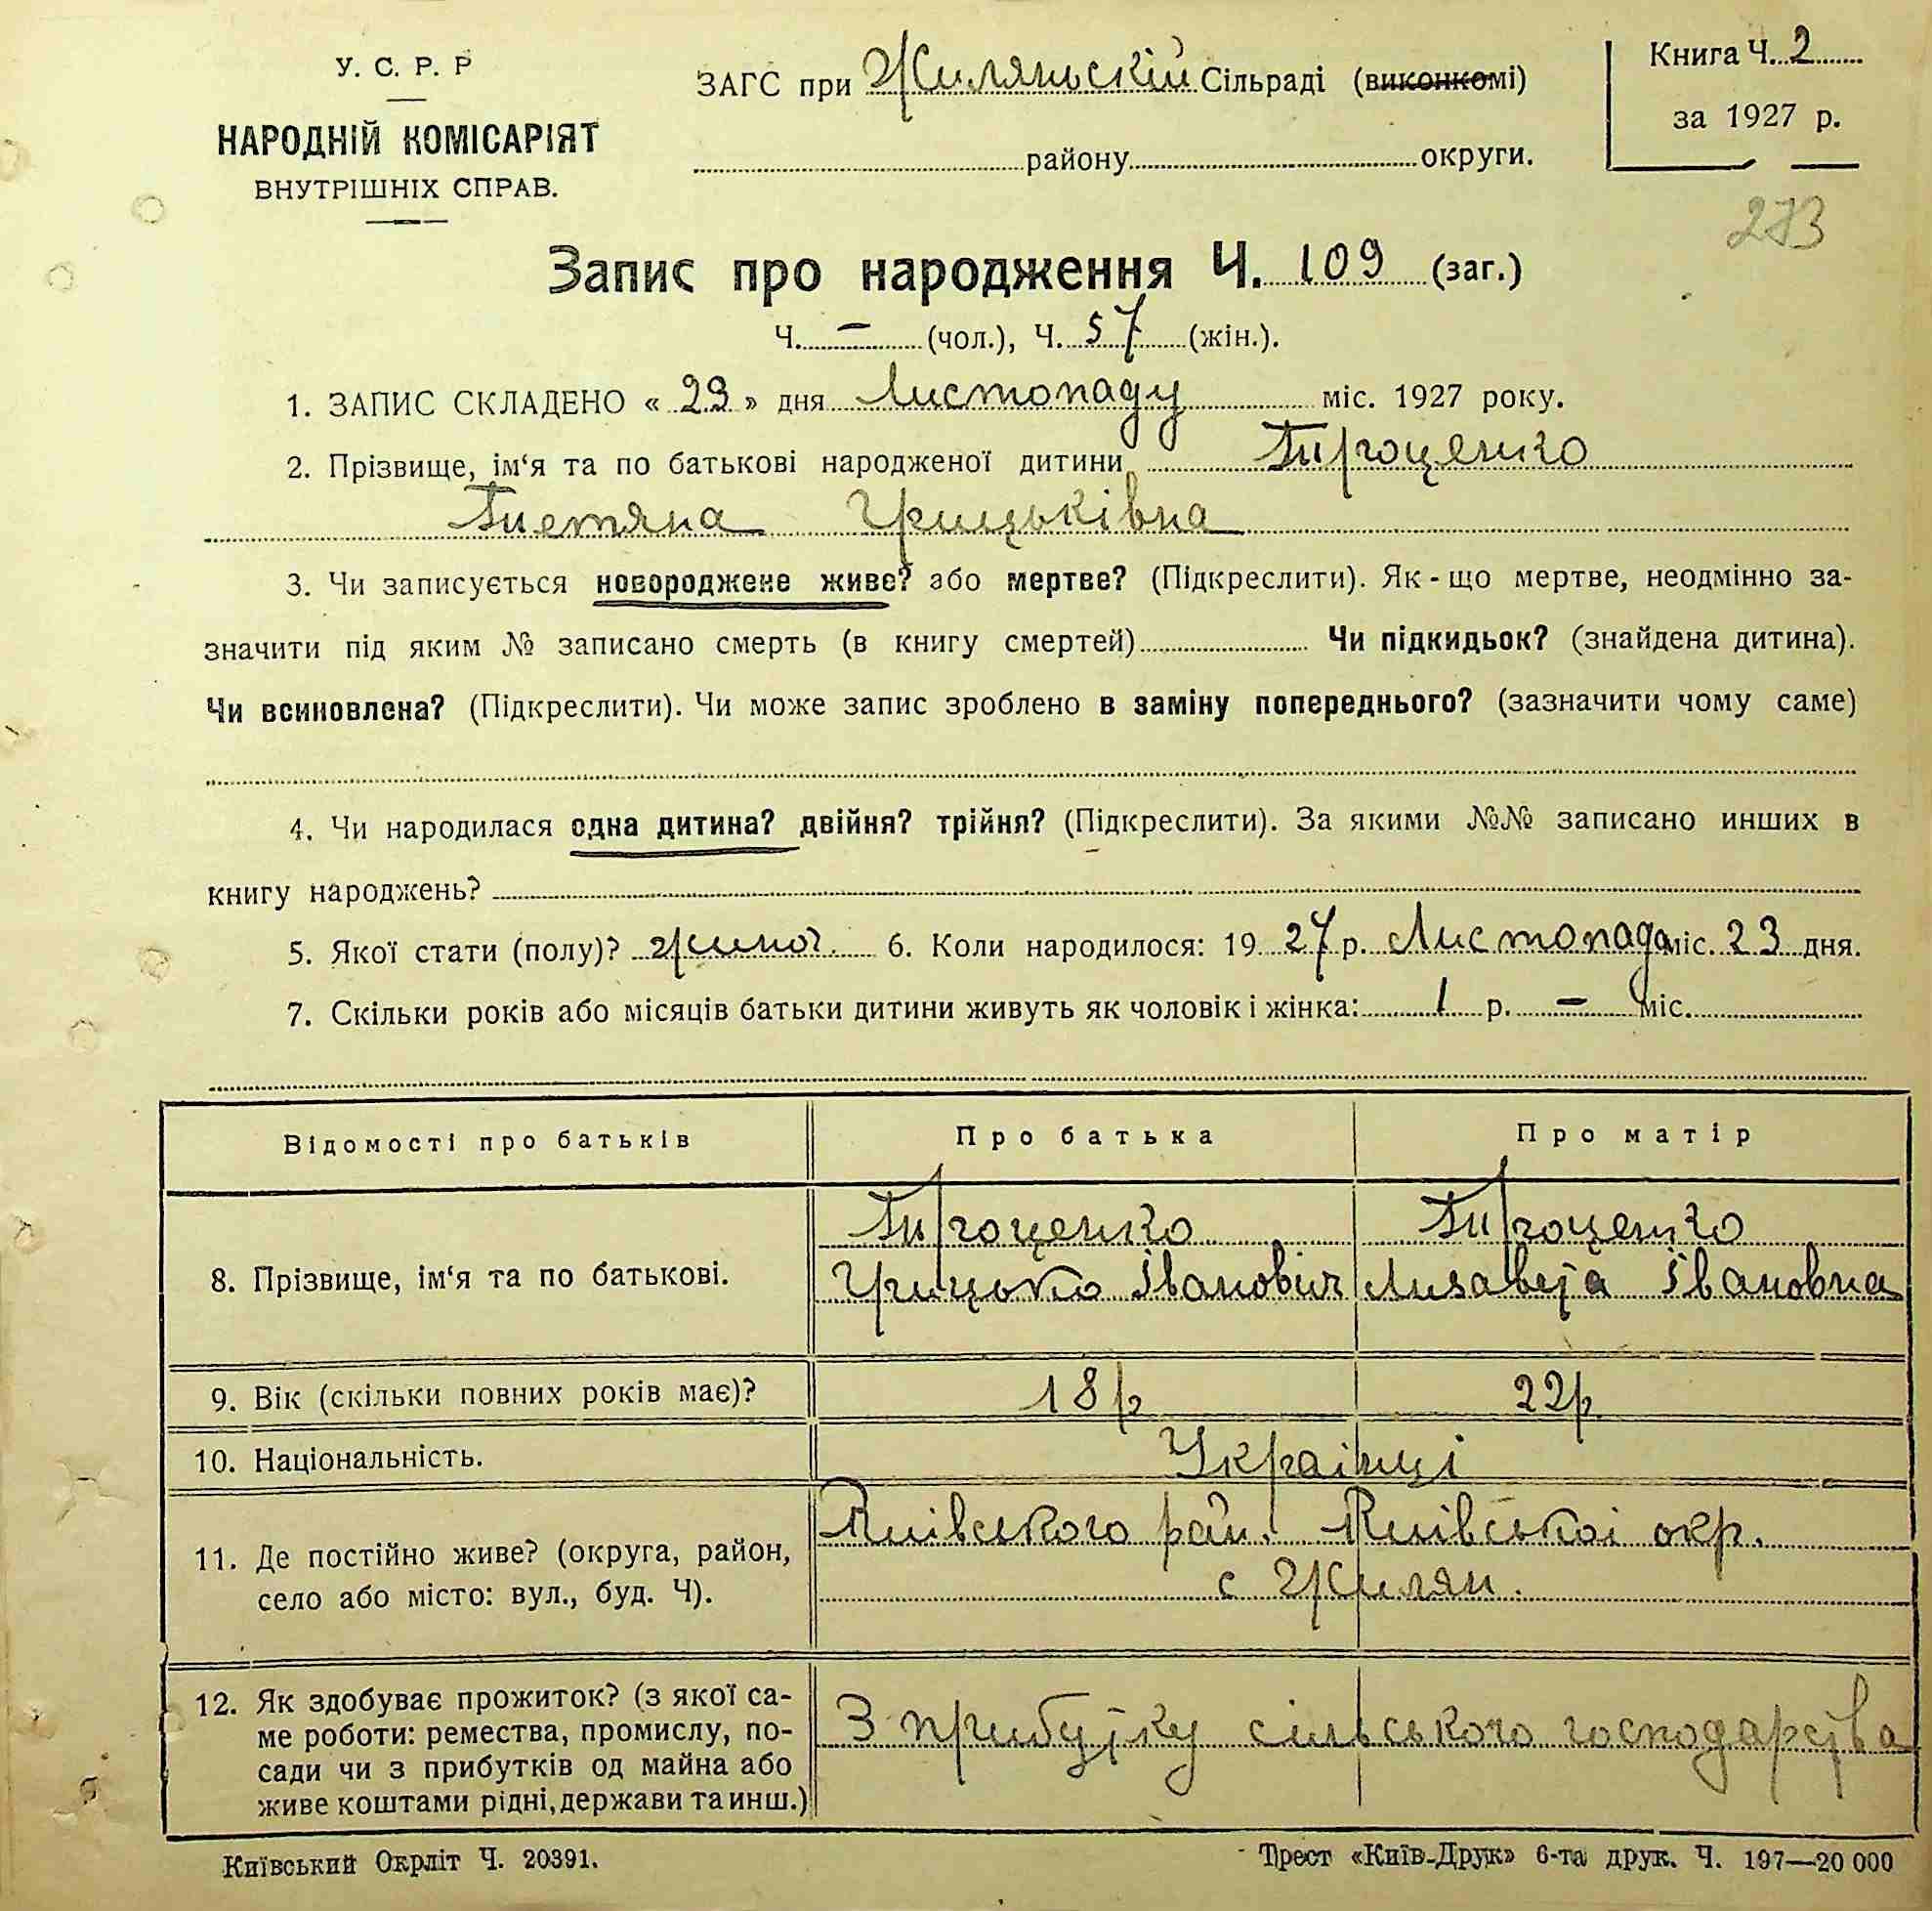 У. С. Р. Р
НАРОДНІЙ КОМІСАРІЯТ
ВНУТРІШНІХ СПРАВ.
ЗАГС при Жиляньскій Сільраді (виконкомі)
району округи.
Книга Ч. 2
за 1927 р.
273
Запис про народження Ч. 109 (заг.)
Ч. – (чол.), Ч. 57 (жін.).
1. ЗАПИС СКЛАДЕНО « 29 » дня Листопаду міс. 1927 року.
2. Прізвище, ім‘я та по батькові народженої дитини Проценко
Тетяна Грицьківна
3. Чи записується новороджене живе? або мертве? (Підкреслити). Як-що мертве, неодмінно за-
значити під яким № записано смерть (в книгу смертей) Чи підкидьок? (знайдена дитина).
Чи всиновлена? (Підкреслити). Чи може запис зроблено в заміну попереднього? (зазначити чому саме)
4. Чи народилася одна дитина? двійня? трійня? (Підкреслити). За якими №№ записано инших в
книгу народжень?
5. Якої стати (полу)? жиноч. 6. Коли народилося: 19 27 р. Листопада міс. 23 дня.
7. Скільки років або місяців батьки дитини живуть як чоловік і жінка: 1 р. – міс.
Відомості про батьків Про батька Про матір
Проценко Проценко
8. Прізвище, ім‘я та по батькові. Грицько Івановіч Лизавета Івановна
9. Вік (скільки повних років має)? 18 р 22 р
10. Національність. Українці
Київського рай. Київської окр.
11. Де постійно живе? (округа, район,
село або місто: вул., буд. Ч). с Жилян.
12. Як здобуває прожиток? (з якої са-
ме роботи: ремества, промислу, по- З прибутку сільського господарства
сади чи з прибутків од майна або
живе коштами рідні, держави та инш.)
Київський Окрліт Ч. 20391. Трест «Київ-Друк» 6-та друк. Ч. 197—20 000